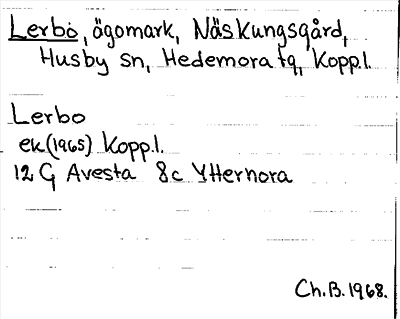 Lerbo, ägomark, Näs Kungsgård,
Husby sn, Hedemora tg, Kopp.l.
Lerbo
ek(1965) Kopp.l.
12 G Avesta 8c Ytternora
Ch.B.1968.